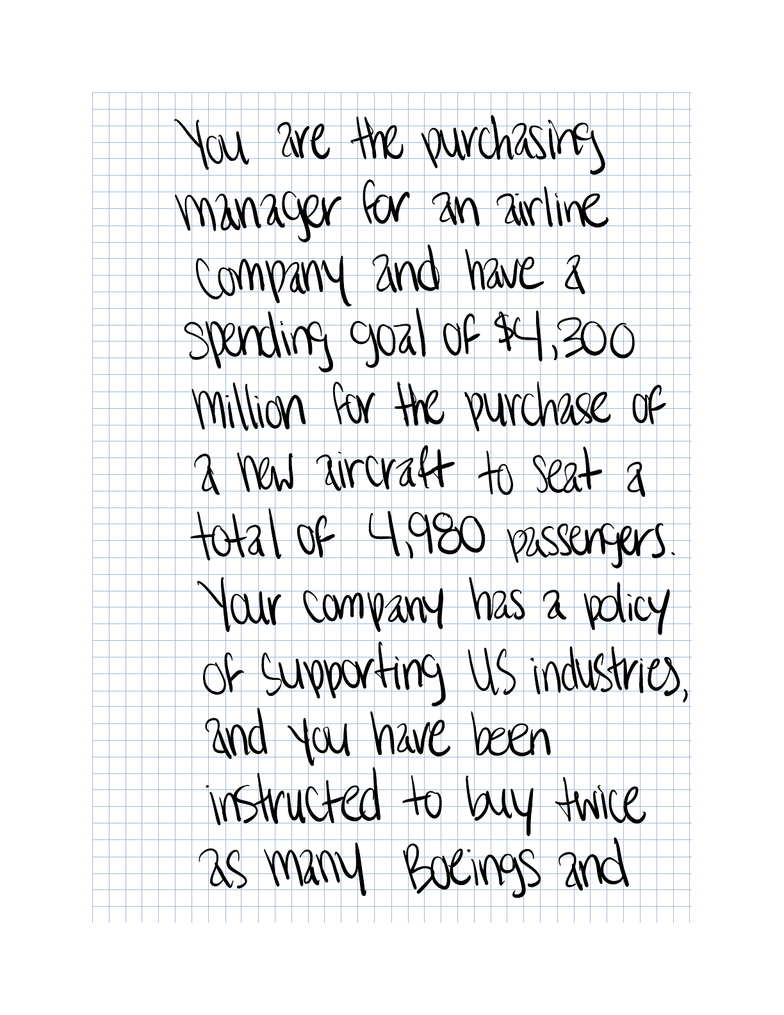 You are the purchasing
manager for an airline
company and have a
spending goal of $4,300
million for the purchase of
a new aircraft to seat a
total of 4,980 passengers.
Your company has a policy
of supporting US industries,
and you have been
instructed to buy twice
as many Boeings and